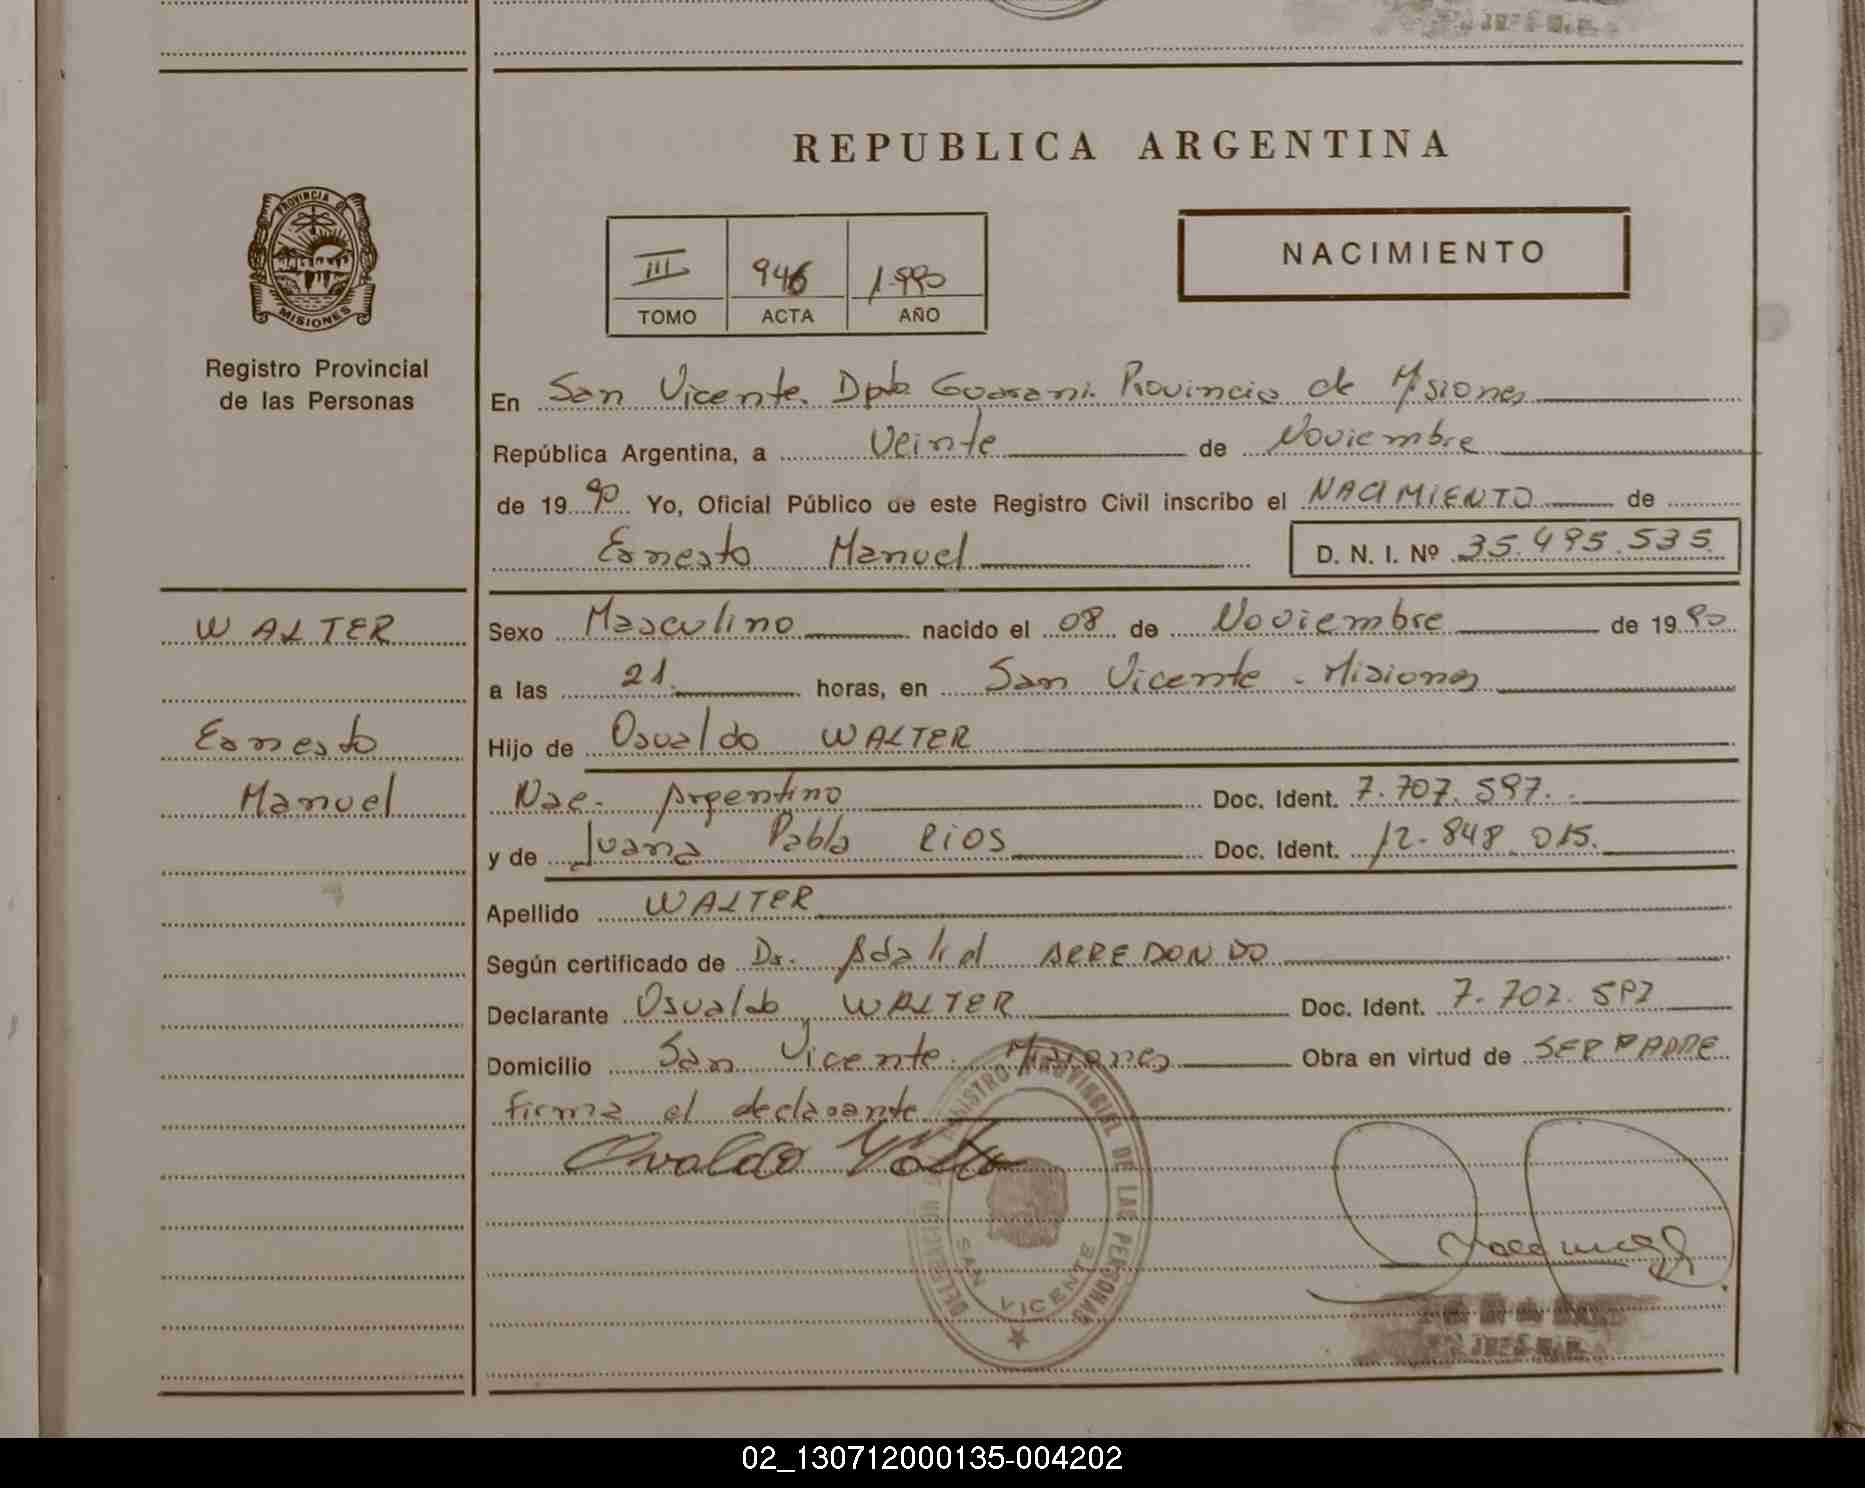 REPUBLICA ARGENTINA
PROVINCIA DE
MISIONES
Registro Provincial
de las Personas
III 946 1.990
TOMO ACTA AÑO
NACIMIENTO
En San Vicente. Dpto. Guarani. Provincia de Misiones
República Argentina, a Veinte de Noviembre
de 19 90 Yo, Oficial Público de este Registro Civil inscribo el NACIMIENTO de
Ernesto Manuel D. N. I. Nº 35.495.535
WALTER
Ernesto
Manuel
Sexo Masculino nacido el 08 de Noviembre de 19 90
a las 21. horas, en San Vicente - Misiones
Hijo de Osvaldo WALTER
Nac. Argentino Doc. Ident. 7.707.597.
y de Juana Pabla RIOS Doc. Ident. 12.848.015.
Apellido WALTER
Según certificado de Dr. ARREDONDO
Declarante Osvaldo WALTER Doc. Ident.
Domicilio San Vicente. Misiones Obra en virtud de SER PADRE
Firma el declarante
Osvaldo Walter
DELEGACION REGISTRO PROVINCIAL DE LAS PERSONAS
SAN VICENTE
02_130712000135-004202